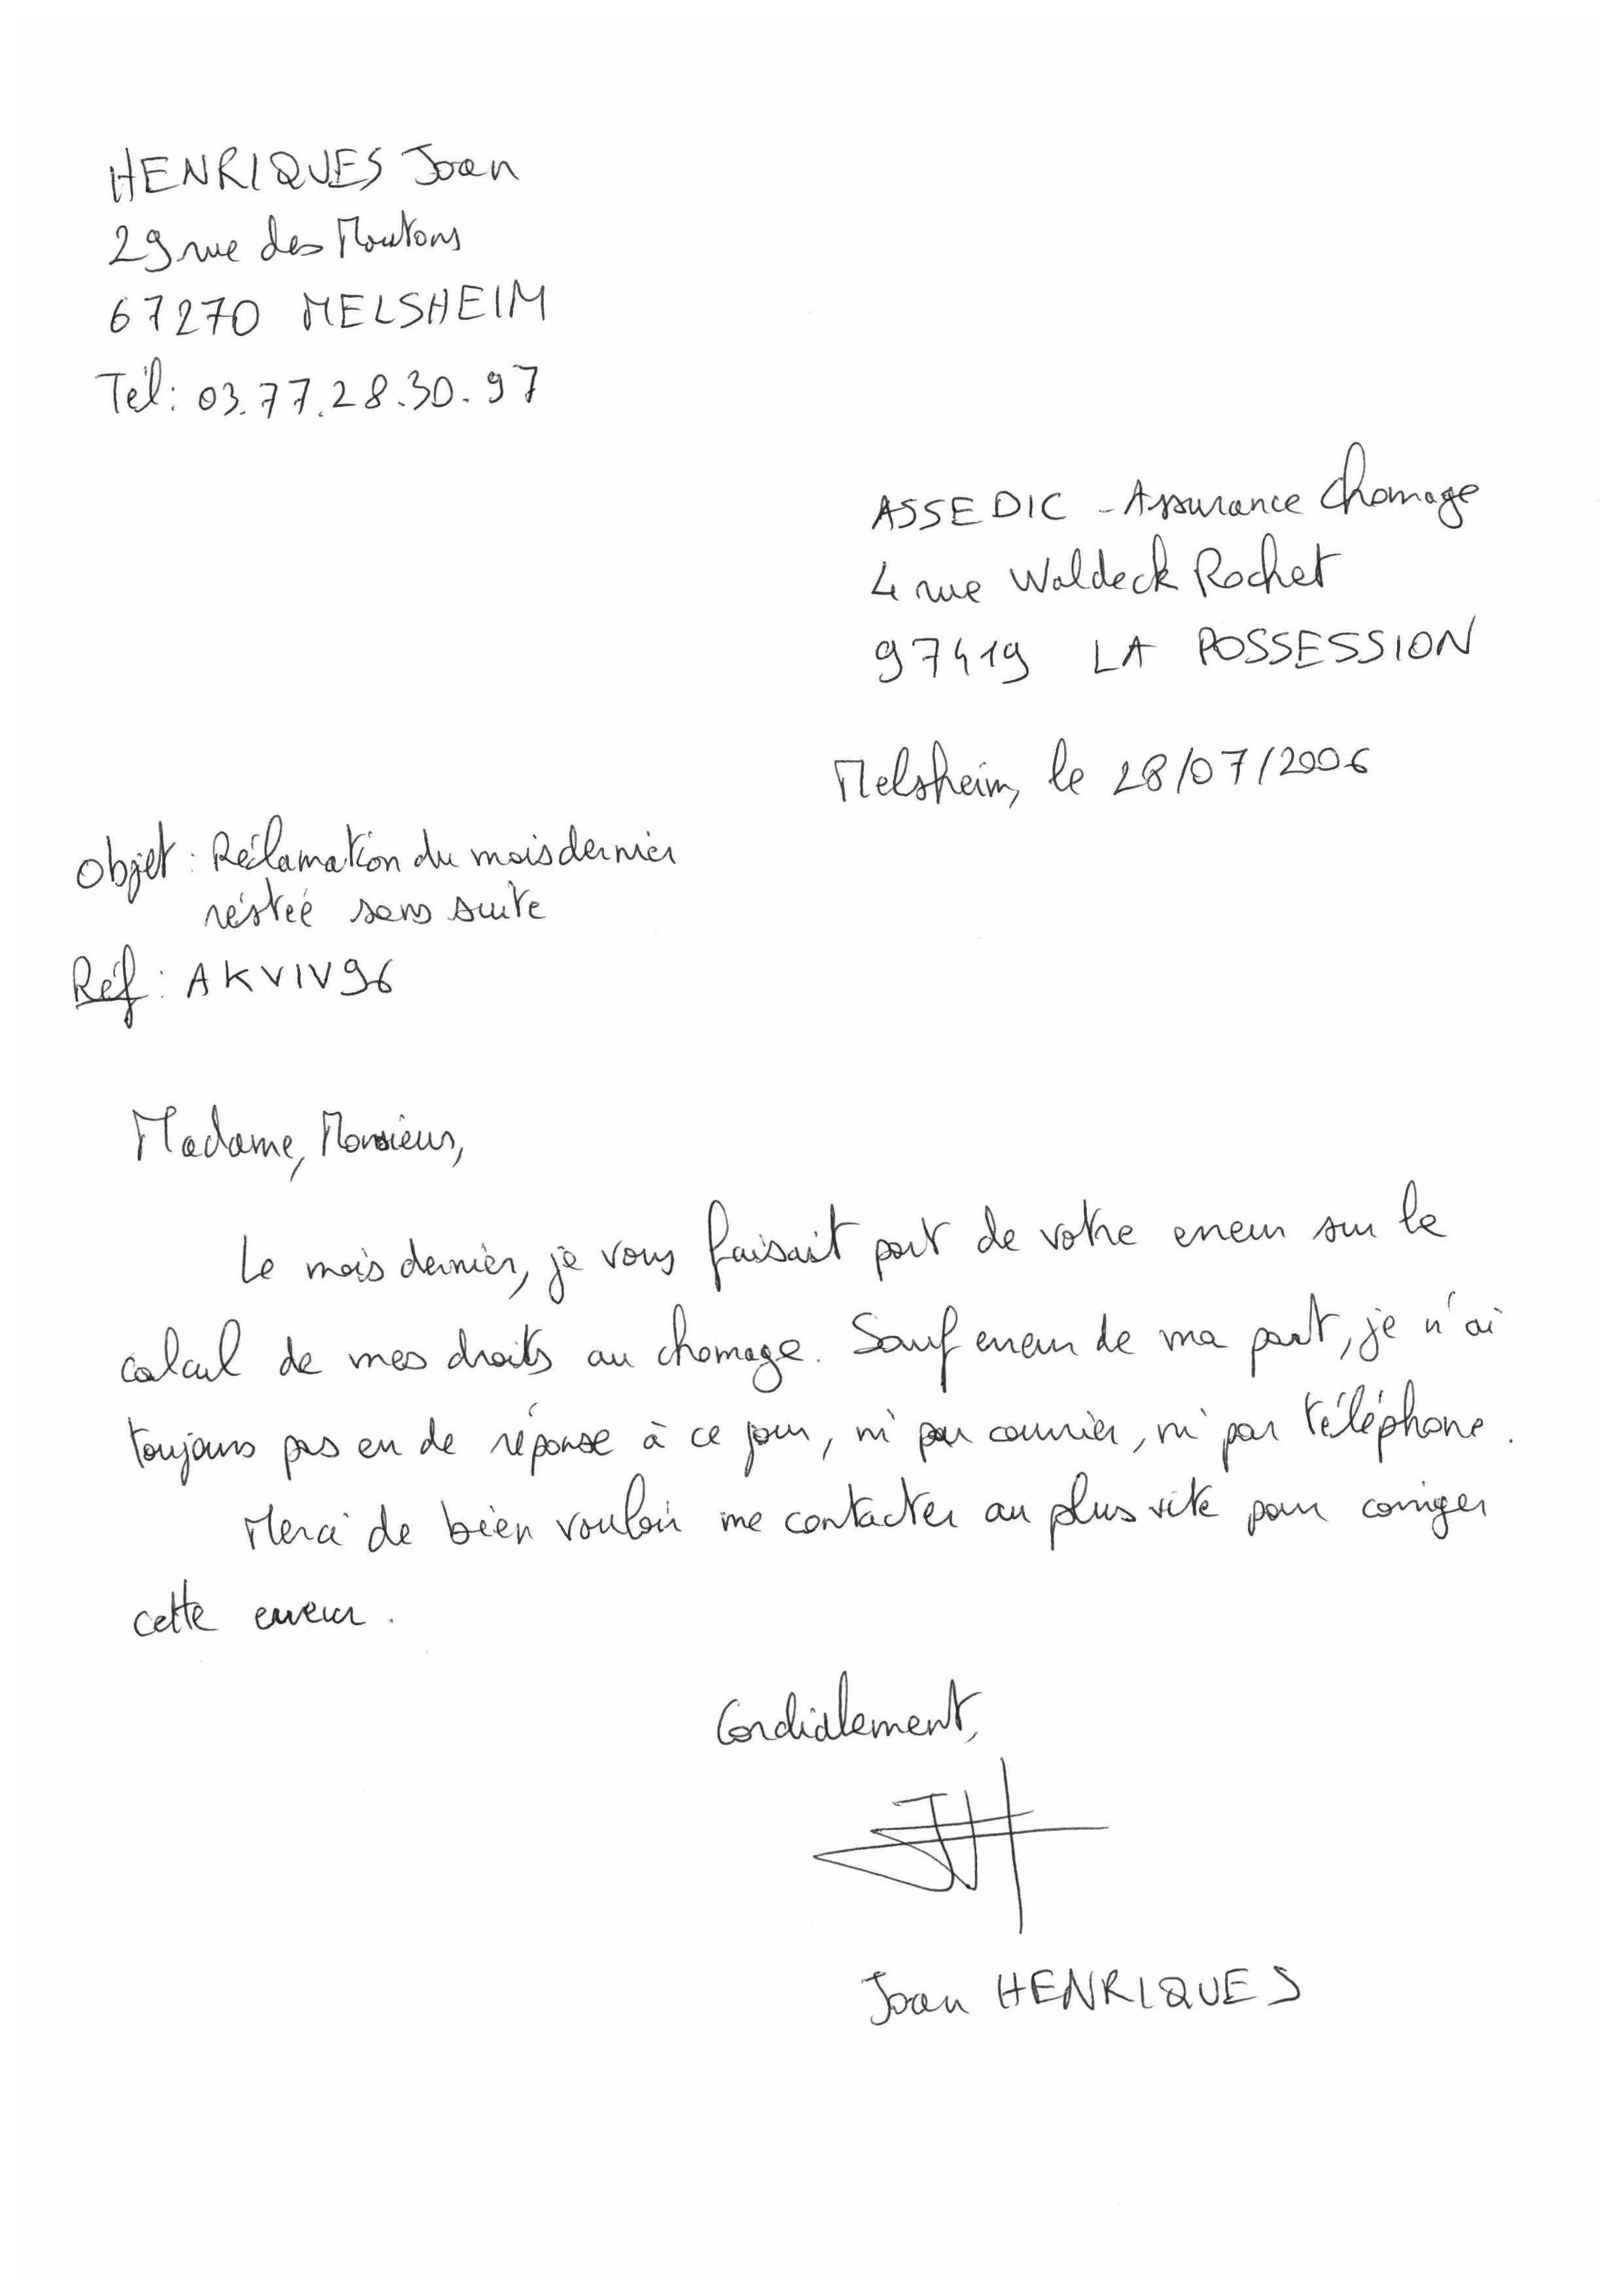 HENRIQUES Joan
29 rue des Moutons
67270 MELSHEIM
Tél: 03.77.28.30.97
ASSEDIC - Assurance chomage
4 rue Waldeck Rochet
97419 LA POSSESSION
Melsheim, le 28/07/2006
Objet : Réclamation du mois dernier
réstée sans suite
Réf : AKVIV96
Madame, Monsieur,
Le mois dernier, je vous faisait part de votre erreur sur le
calcul de mes droits au chomage. Sauf erreur de ma part, je n'ai
toujours pas eu de réponse à ce jour, ni par courrier, ni par téléphone.
Merci de bien vouloir me contacter au plus vite pour corriger
cette erreur.
Cordialement,
JH
Joan HENRIQUES